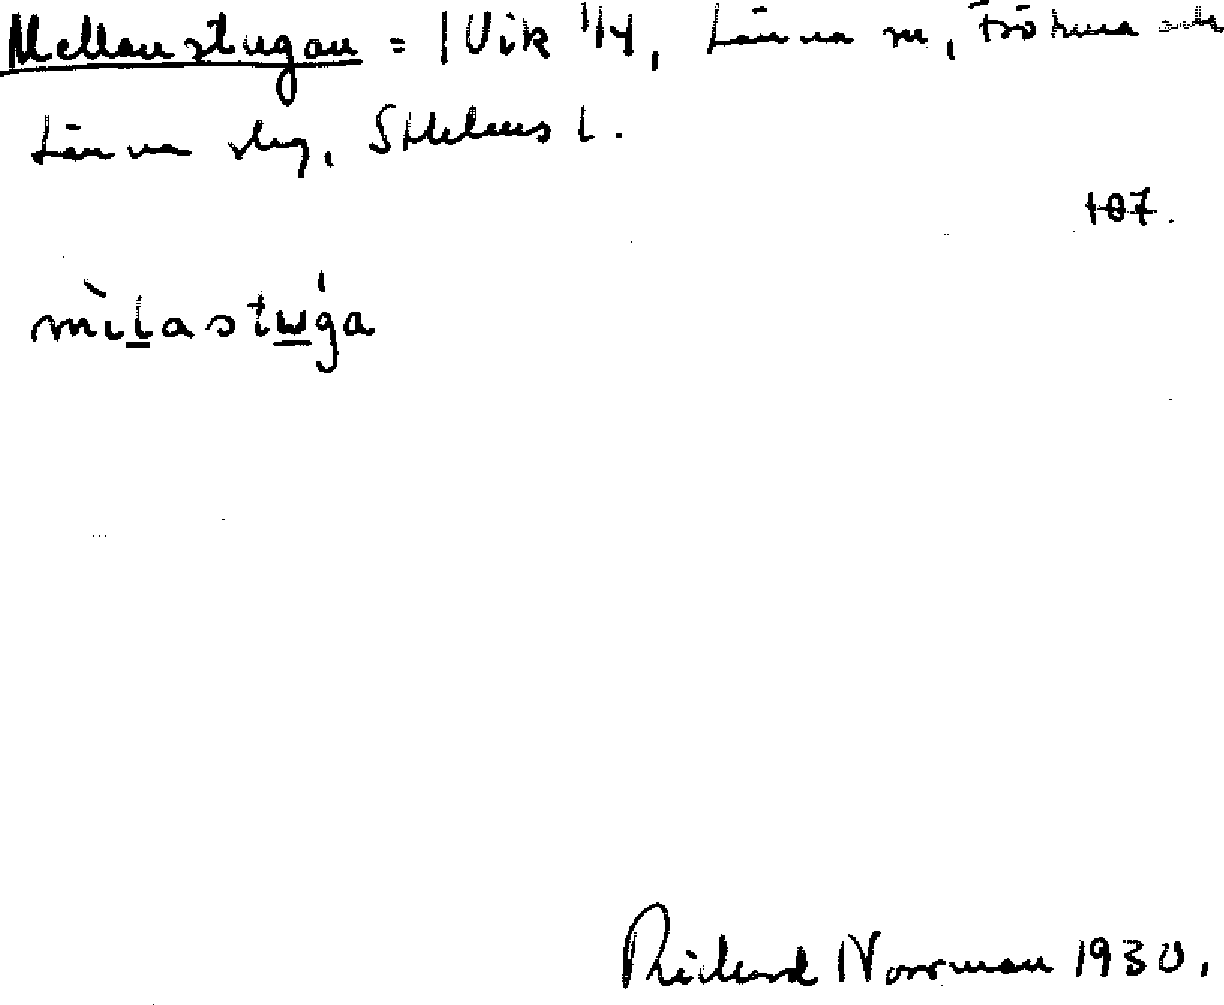 Mellanstugan = 1 Vik 1/4, Länna sn, Frötuna och
Länna skg, Sthlms l.
107.
mìlastẃga
Richard Norrman 1930.